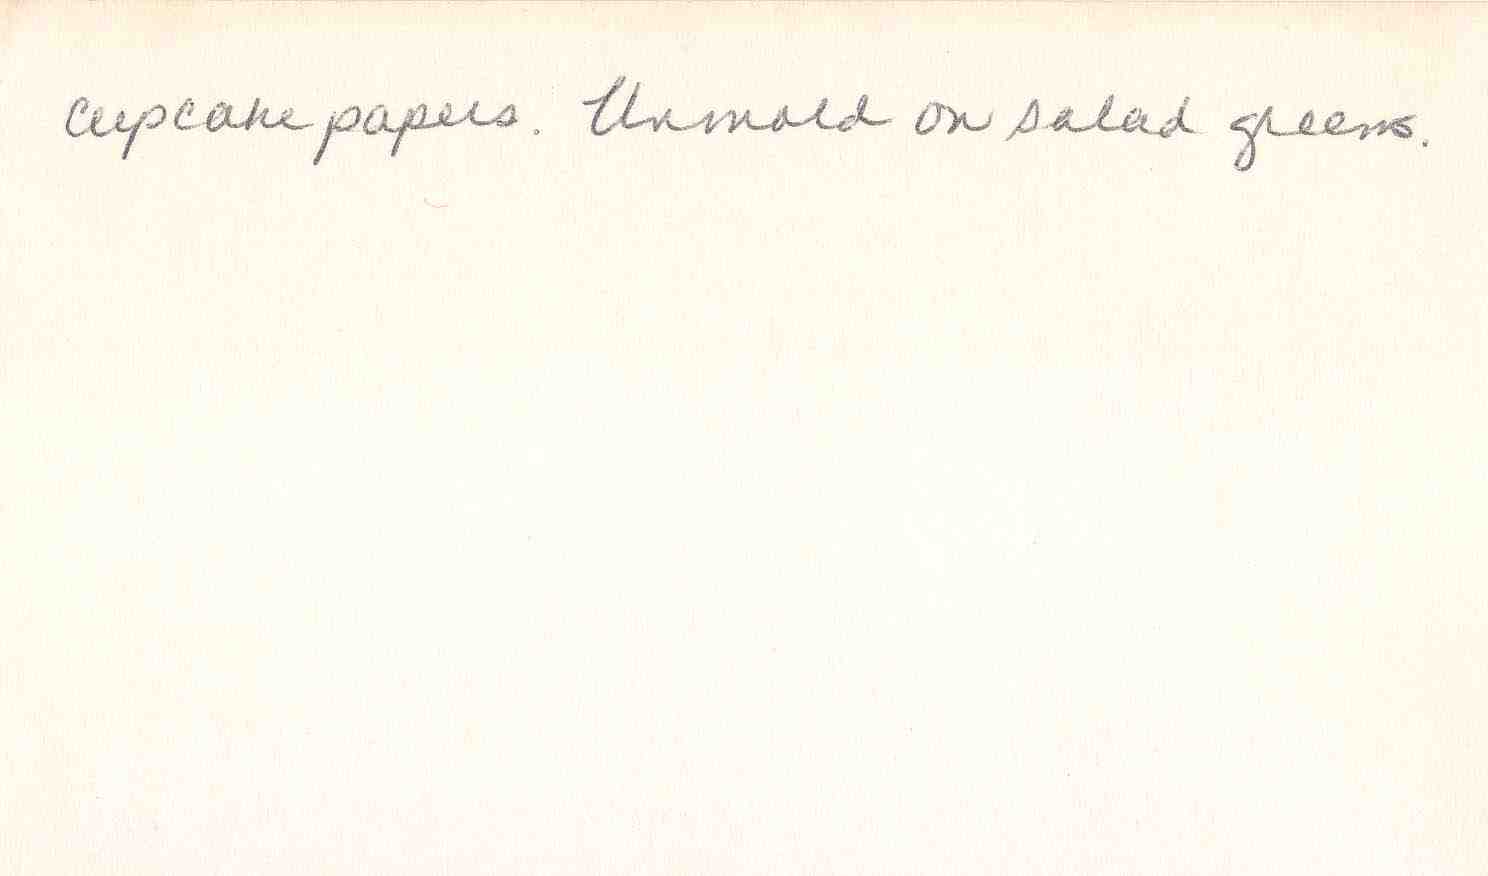 cupcake papers. Unmold on salad greens.